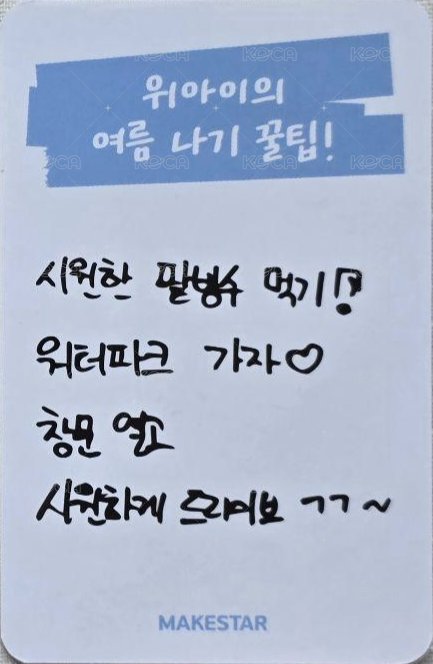 위아이의
여름 나기 꿀팁!
시원한 팥빙수 먹기!?
워터파크 가자♡
창문 열고
시원하게 드라이브 ㄱㄱ~
MAKESTAR